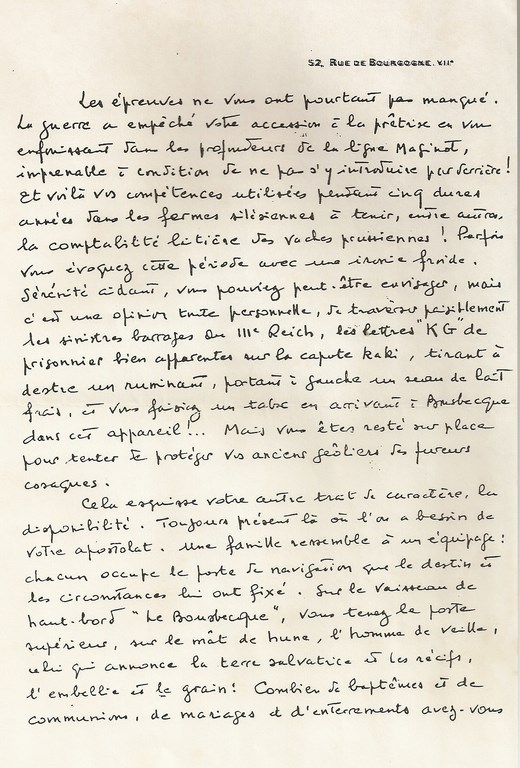 52, RUE DE BOURGOGNE. VIIe
Les épreuves ne vous ont pourtant pas manqué.
La guerre a empêché votre accession à la prêtrise en vous
enfouissant dans les profondeurs de la ligne Maginot,
imprenable à condition de ne pas s'y introduire par derrière !
Et voilà vos compétences utilisées pendant cinq dures
années dans les fermes silésiennes à tenir, entre autres,
la comptabilité laitière des vaches prussiennes ! Parfois
vous évoquez cette période avec une ironie froide.
Sérénité aidant, vous pouviez peut-être envisager, mais
c'est une opinion toute personnelle, de traverser paisiblement
les sinistres barrages du IIIe Reich, les lettres "KG" de
prisonnier bien apparentes sur la capote kaki, tirant à
destre un ruminant, portant à gauche un seau de lait
frais, et vous faisiez un tabac en arrivant à Bousbecque
dans cet appareil !... Mais vous êtes resté sur place
pour tenter de protéger vos anciens geôliers des fureurs
cosaques.
Cela esquisse votre autre trait de caractère, la
disponibilité. Toujours présent là où l'on a besoin de
votre apostolat. Une famille ressemble à un équipage :
chacun occupe le poste de navigation que le destin et
les circonstances lui ont fixé. Sur le vaisseau de
haut-bord "Le Bousbecque", vous tenez le poste
supérieur, sur le mât de hune, l'homme de veille,
celui qui annonce la terre salvatrice et les récifs,
l'embellie et le grain ! Combien de baptêmes et de
communions, de mariages et d'enterrements avez-vous